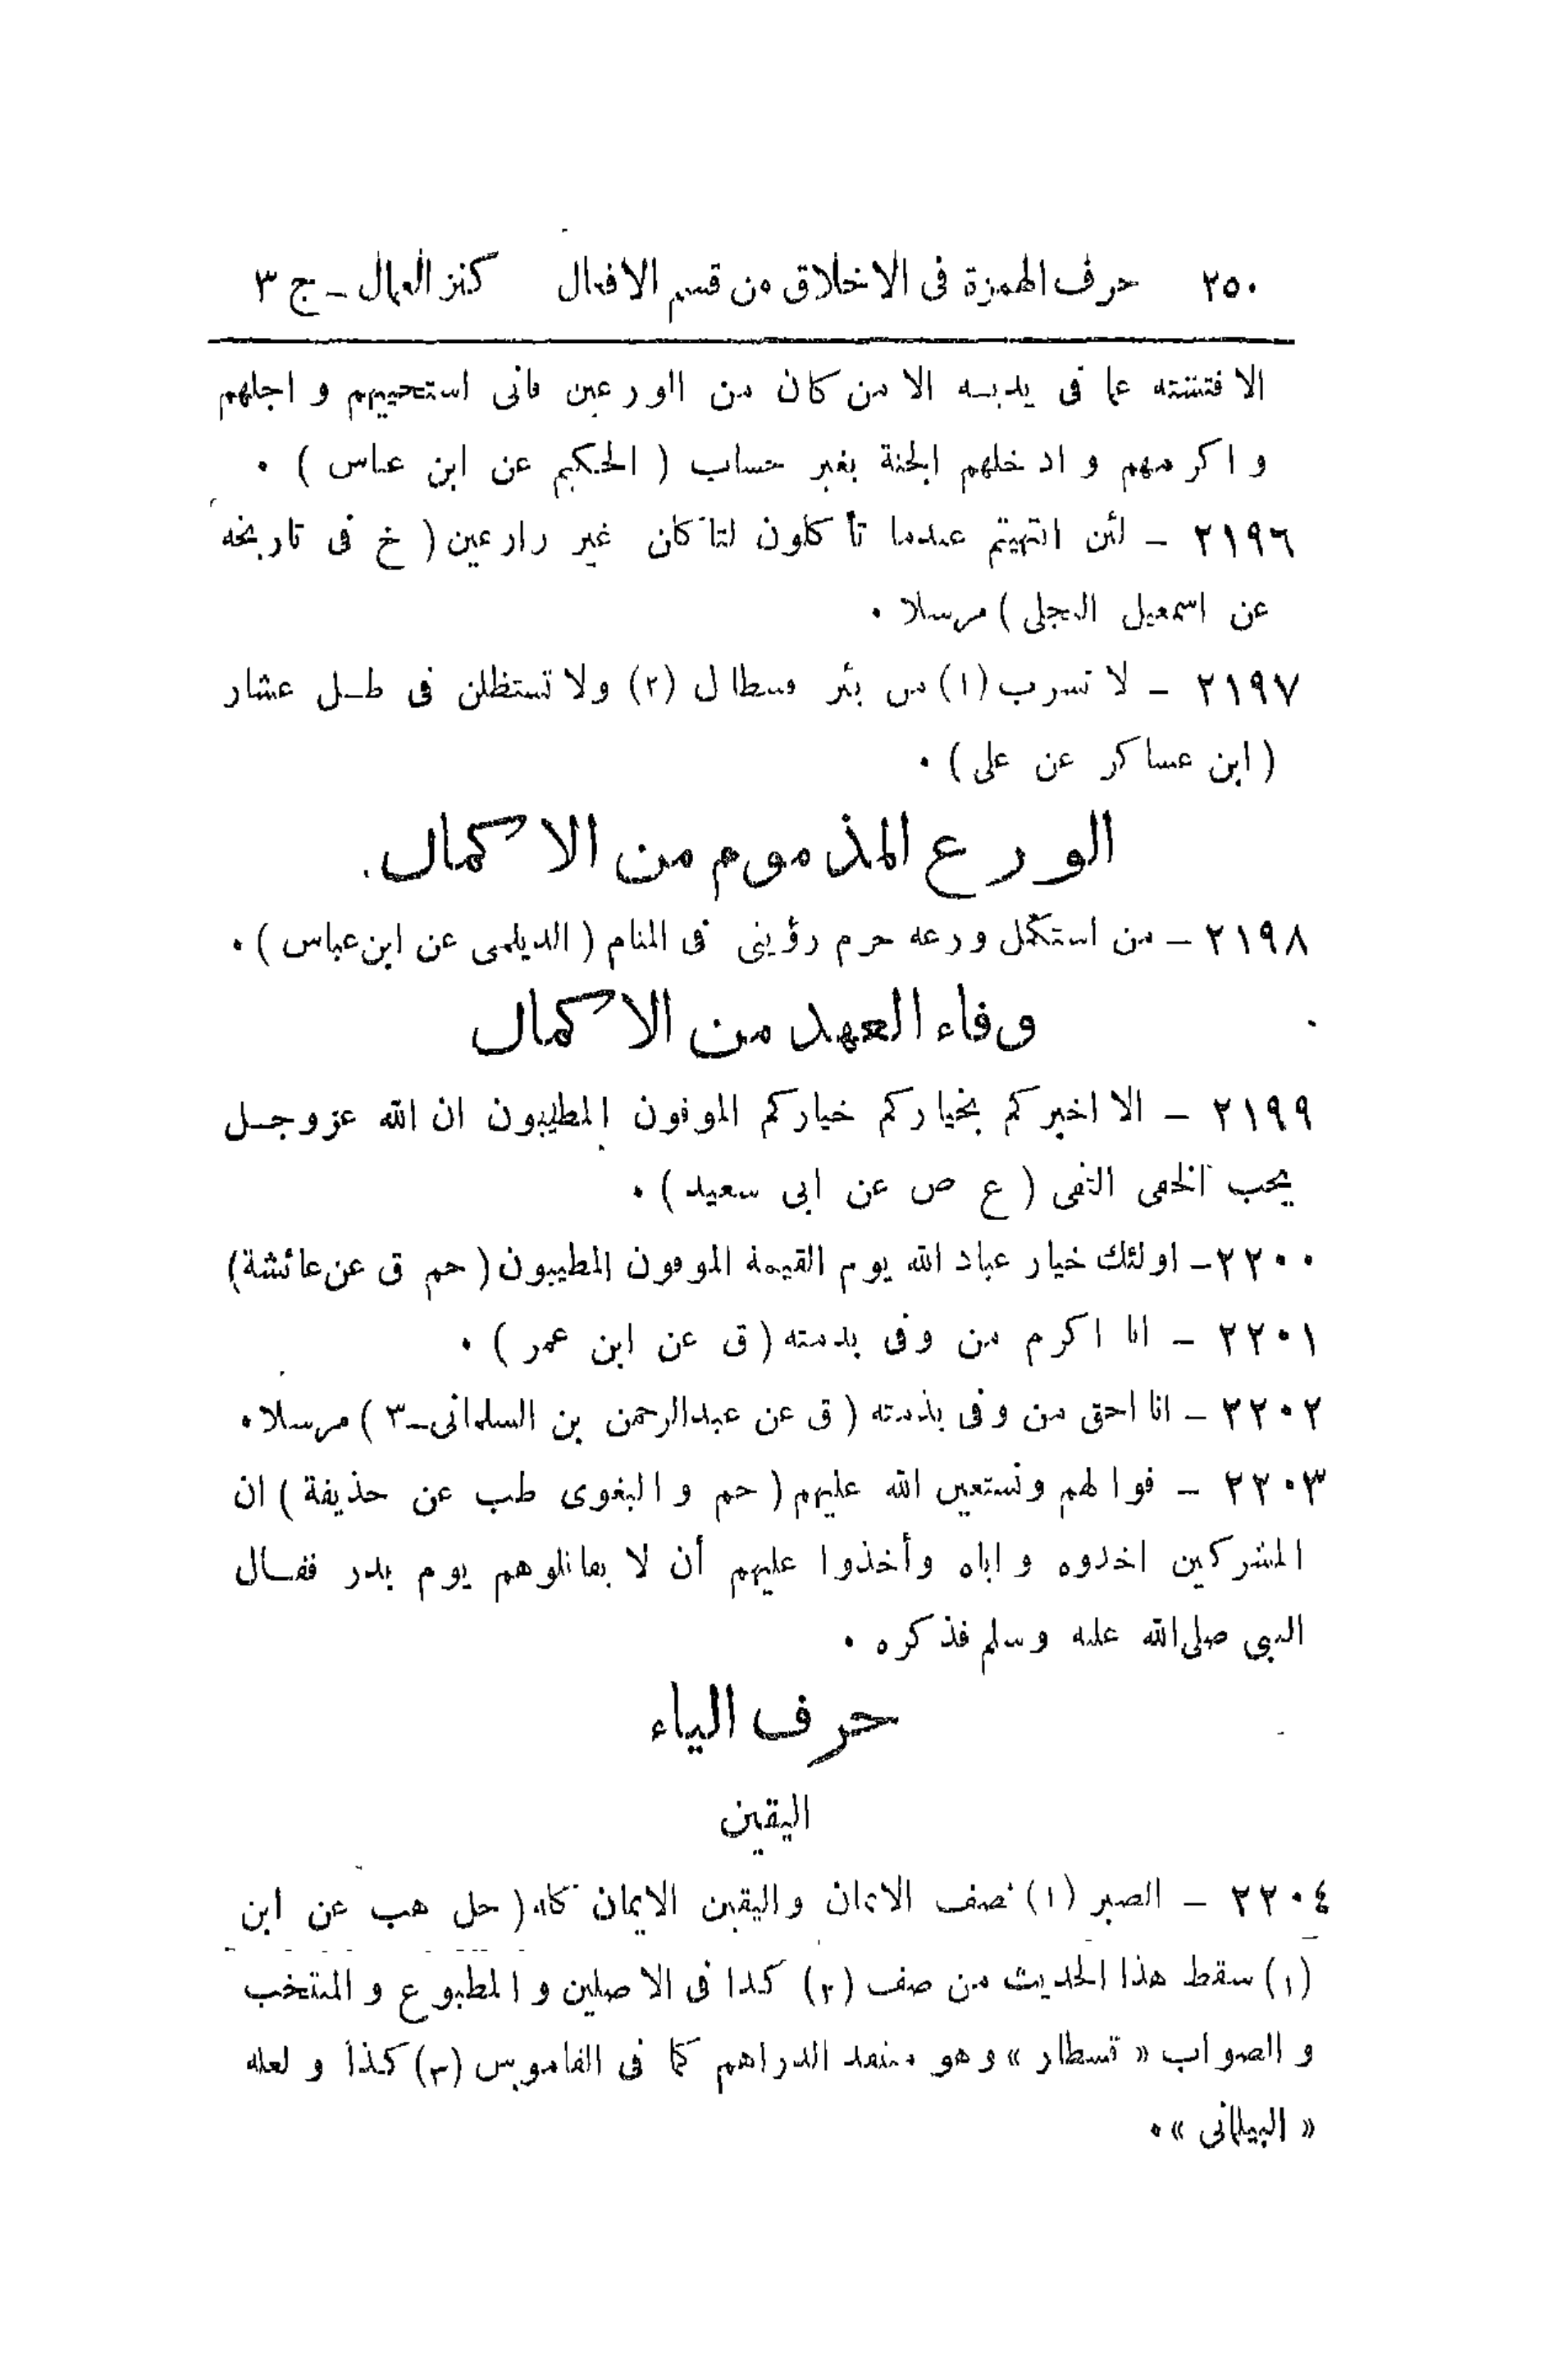 ٢٥٠ حرف الهمزة فى الاخلاق من قسم الافعال كنز العمال – ج ٣
الا فتشته عما فى يديه الا من كان من الورعين فانى استحييهم و اجلهم
و اكرمهم و ادخلهم الجنة بغير حساب ( الحكيم عن ابن عباس ) .
٢١٩٦ – لئن انتهيتم عندما تأكلون لتأكلن غير زارعين ( خ فى تاريخه
عن اسمعيل البجلى ) مرسلا .
٢١٩٧ – لا تشرب (١) من بئر قسطال (٢) ولا تستظلن فى ظـل عشار
( ابن عساكر عن على ) .
الورع المذموم من الاكمال .
٢١٩٨ – من استكمل ورعه حرم رؤيتى فى المنام ( الديلمى عن ابن عباس ) .
وفاء العهد من الاكمال
٢١٩٩ – الا اخبركم بخياركم خياركم الموفون المطيبون ان الله عز وجـل
يحب الخفى التقى ( ع ص عن ابى سعيد ) .
٢٢٠٠ – اولئك خيار عباد الله يوم القيمة الموفون المطيبون ( حم ق عن عائشة )
٢٢٠١ – انا اكرم من وفى بذمته ( ق عن ابن عمر ) .
٢٢٠٢ – انا احق من وفى بذمته ( ق عن عبدالرحمن بن السلمانى–٣ ) مرسلا .
٢٢٠٣ – فوا لهم ونستعين الله عليهم ( حم و البغوى طب عن حذيفة ) ان
المشركين اخذوه و اباه وأخذوا عليهم أن لا يقاتلوهم يوم بدر فقـال
النبى صلى الله عليه وسلم فذكره .
حرف الياء
اليقين
٢٢٠٤ – الصبر (١) نصف الايمان واليقين الايمان كله ( حل هب عن ابن
(١) سقط هذا الحديث من صف (٢) كذا فى الاصلين و المطبوع و المنتخب
و الصواب « قسطار » وهو منتقد الدراهم كما فى القاموس (٣) كذا و لعله
« البيلمانى » .